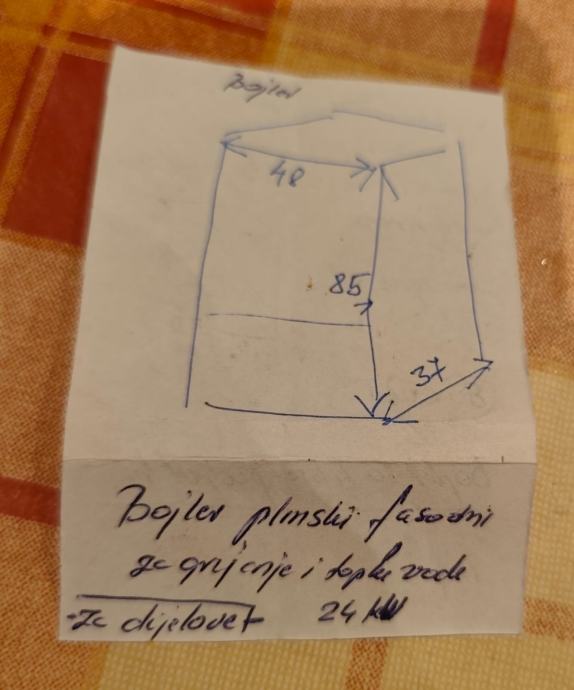 Bojler
48
85
37
Bojler plinski fasadni
za grijanje i tople vode
-za dijelove+ 24 kW